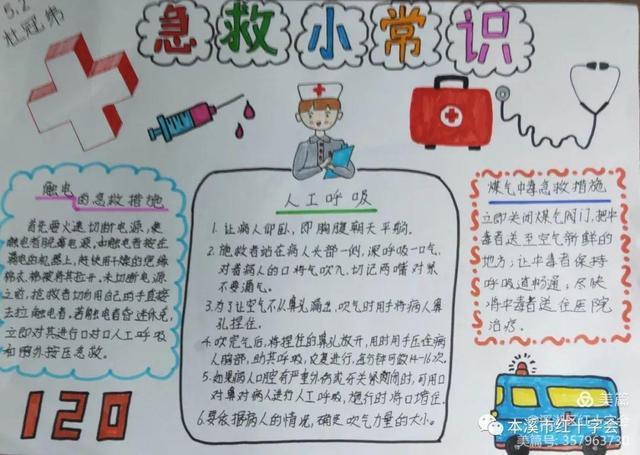 5.2
杜冠弟
急救小常识
触电的急救措施
首先要火速切断电源,使
触电者脱离电源,如触电者按在
漏电的机器上,赶快用干燥的绝缘
棉衣、棉被将其拉开。未切断电源
之前,抢救者切勿用自己的手直接
去拉触电者,若触电者昏迷休克,
立即对其进行口对口人工呼吸
和胸外按压急救。
120
人工呼吸
1.让病人仰卧,即胸腹朝天平躺。
2.施救者站在病人头部一侧,深呼吸一口气,
对着病人的口将气吹入,切记两嘴对紧
不要漏气。
3.为了让空气不从鼻孔漏出,吹气时用手将病人鼻
孔捏住。
4.吹完气后,将捏住的鼻孔放开,用时用手压在病
人胸部,助其呼吸,反复进行,每分钟可做14-16次。
5.如果病人口腔有严重外伤或牙关紧闭时,可用口
对鼻对病人进行人工呼吸,施行时将口堵住。
6.要依据病人的情况,确定吹气力量的大小。
煤气中毒急救措施
立即关闭煤气阀门,把中
毒者送至空气新鲜的
地方,让中毒者保持
呼吸道畅通,尽快
将中毒者送往医院
治疗。
美篇
本溪市红十字会
美篇号:357963730